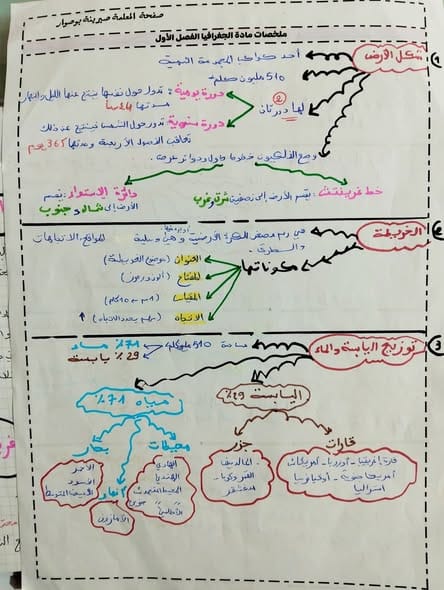 صفحة المعلمة صبرينة بوصوار
ملخصات مادة الجغرافيا الفصل الأول
1 شكل الأرض
أحد كواكب المجموعة الشمسية
510 مليون كلم²
لها دورتان
2
دورة يومية: تدور حول نفسها ينتج عنها الليل والنهار
مدتها 24 سا
دورة سنوية: تدور حول الشمس فينتج عن ذلك
تعاقب الفصول الأربعة ومدتها 365 يوم
وضع الفلكيون خطوط طول ودوائر عرض
خط غرينتش: يقسم الأرض إلى نصفين شرق وغرب
دائرة الاستواء: يقسم
الأرض إلى شمال وجنوب
2 الخريطة
هي رسم مصغر للكرة الأرضية وهي وسيلة لمواقع الاتجاهات
والطرق
مكوناتها
العنوان (موضوع الخريطة)
المفتاح (ألوان ورموز)
المقياس
الاتجاه (سهم يحدد الاتجاه) ↑
3 توزيع اليابسة والماء
مساحة 510 مليون كلم²
71٪ ماء
29٪ يابسة
مياه 71٪
اليابسة 29٪
بحار
محيطات
جزر
قارات
الأحمر
الأسود
المتوسط
أنهار
الأمازون
الهادي
الهندي
المحيط المتجمد
المالديف
مدغشقر
قارة إفريقيا - أوروبا - أمريكا ش
أمريكا جنوبية -
أستراليا